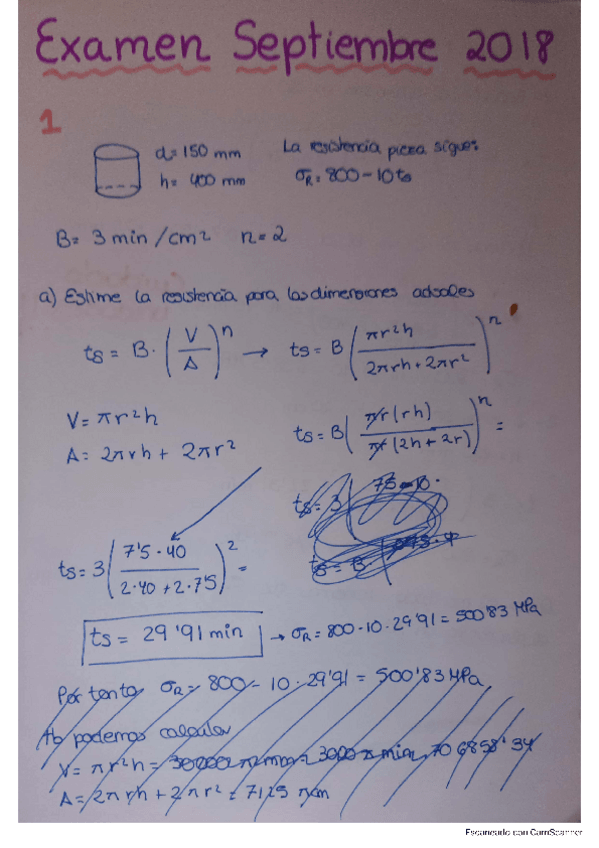 Examen Septiembre 2018
1
d = 150 mm
h = 400 mm
La resistencia pieza sigue:
σR = 800 - 10 ts
B = 3 min/cm² n = 2
a) Estime la resistencia para las dimensiones
ts = B · (V/A)^n → ts = B (πr²h / 2πrh + 2πr²)^n
V = πr²h
A = 2πrh + 2πr²
ts = B (πr(rh) / πr(2h + 2r))^n =
ts = 3 (7'5 · 40 / 2·40 + 2·7'5)² =
ts = 29'91 min → σR = 800 - 10 · 29'91 = 500'83 MPa
Por tanto σR = 800 - 10 · 29'91 = 500'83 MPa
tb podemos calcular
V = πr²h =
A = 2πrh + 2πr² = 7125
Escaneado con CamScanner